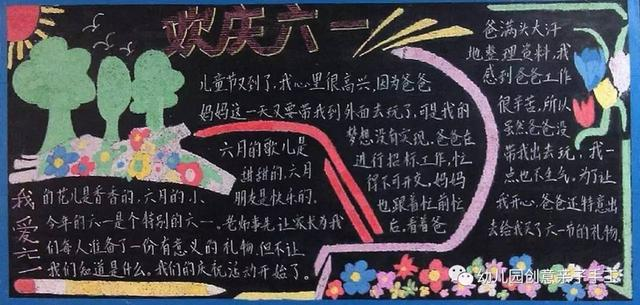 欢庆六一
儿童节又到了,我心里很高兴,因为爸爸
妈妈这一天又要带我到外面去玩了,可是我的
梦想没有实现,爸爸在
进行招标工作,忙
得不可开交,妈妈
也跟着忙前忙
后,看着爸
爸满头大汗
地整理资料,我
感到爸爸工作
很辛苦,所以
虽然爸爸没
带我出去玩,我一
点也不生气。为了让
我开心,爸爸还特意出
去给我买了六一节的礼物.
六月的歌儿是
甜甜的,六月
的花儿是香香的,六月的小
朋友是快乐的.
今年的六一是个特别的六一。老师事先让家长为我
们每人准备了一份有意义的礼物,但不让
我们知道是什么。我们的庆祝活动开始了。
我爱六一
幼儿园创意亲子手工